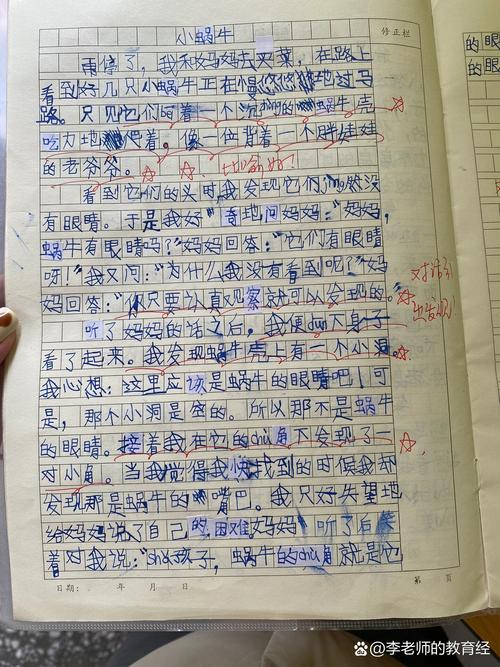 修正栏
小蜗牛
雨停了，我和妈妈去买菜，在路上
看到好几只小蜗牛正在慢悠悠地过马
路。只见它们背着一个沉的蜗牛壳
吃力地爬着。像一位背着一个胖娃娃
的老爷爷。
比喻好
看到它们的头时我发现它们jing然没
有眼睛。于是我好奇地问妈妈：“妈妈，
蜗牛有眼睛吗？”妈妈回答：“它们有眼睛
呀！”我又问：“为什么我没有看到呢？”妈
妈回答：“你只要认真观察就可以发现的。”
对话引
出发现
听了妈妈的话之后，我便dun下身子
看了起来。我发现蜗牛壳上有一个小洞。
我心想：这里应该是蜗牛的眼睛吧！可
是，那个小洞是空的。所以那不是蜗牛
的眼睛。接着我在它的chu角下发现了一
对小角。当我觉得我快找到的时候我却
发现那是蜗牛的嘴巴。我只好失望地
给妈妈说了自己的困难。妈妈听了后笑
着对我说：“sha孩子，蜗牛的chu角就是它
日期：年月日
第页
的眼
的眼
@李老师的教育经